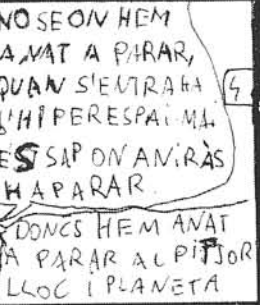 NO SE ON HEM
ANAT A PARAR,
QUAN S'ENTRA HA
L'HIPERESPAI MA.
ES SAP ON ANIRÀS
HA PARAR.
4
DONCS HEM ANAT
A PARAR AL PITJOR
LLOC I PLANETA